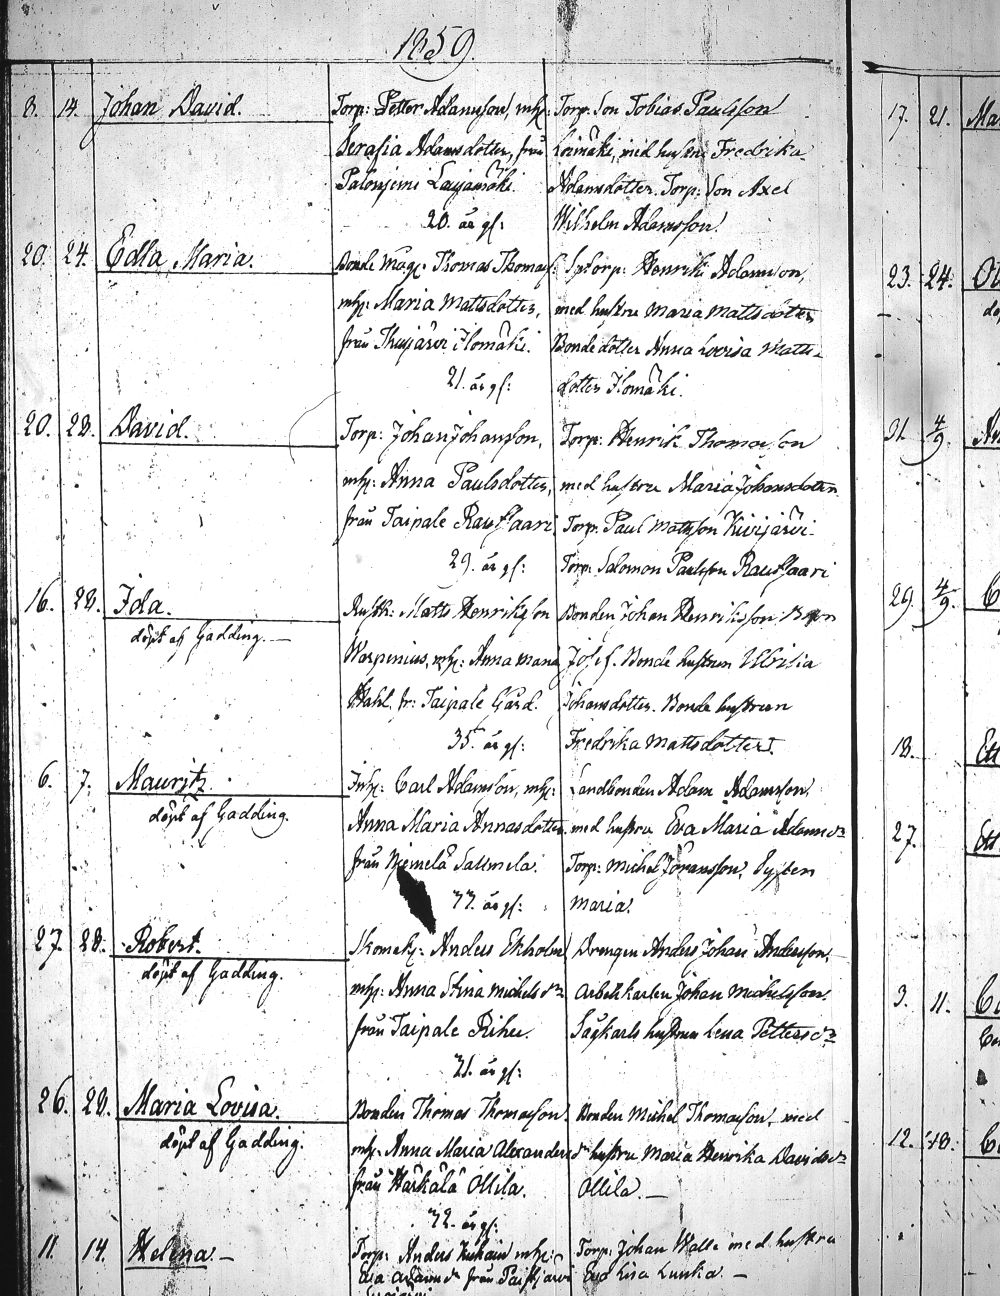 1859.
8. 14. Johan David.
Torp: Petter Adamsson, mh:
Serafia Adamsdotter, från
Salonjemi
20. år gl:
Torp. Son Tobias Paulsson
med hustru Fredrika
Adamsdotter. Torp: Son Axel
Wilhelm Adamsson.
20. 24. Edla Maria.
Bonde Mag: Thomas Thomass:
mh: Maria Mattsdotter,
från Kuijärvi Ilomäki.
21. år gl:
Sptorp: Henrik Adamsson,
med hustru Maria Mattsdotter
Bonde dotter Anna Lovisa Matts-
dotter Ilomäki.
20. 28. David.
Torp: Johan Johansson,
mh: Anna Paulsdotter,
från Taipale Raussaari.
29. år gl:
Torp: Henrik Thomasson
med hustru Maria Johansdotter.
Torp: Paul Mattsson Kivijärvi.
Torp: Salomon Paulsson Raussaari
16. 28. Ida.
döpt af Gadding. —
Rustk: Matts Henriksson
Warpenius, mh: Anna Maria
Stahl, fr: Taipale Gård.
35. år gl:
Bonden Johan Henriksson
Josef. Bonde hustrun Ulrika
Johansdotter. Bonde hustrun
Fredrika Mattsdotter.
6. 7. Mauritz.
döpt af Gadding.
Inh: Carl Adamsson, mh:
Anna Maria Annasdotter
från Niemelä Salmela.
år gl:
Landbonden Adam Adamsson
med hustru Eva Maria Adamsdr
Torp: Michel Göransson.
Maria.
27. 28. Robert.
döpt af Gadding.
Skomak: Anders Ekholm
mh: Anna Stina Michelsdr
från Taipale Rihu.
år gl:
Drengen Anders Johan Andersson.
Arbetskarlen Johan Michelsson.
Sågkarls hustrun Lena Pettersdr
26. 28. Maria Lovisa.
döpt af Gadding.
Bonden Thomas Thomasson.
mh: Anna Maria Alexandersdr
från Härkälä Ollila.
år gl:
Bonden Michel Thomasson, med
hustru Maria Henrika Davidsdr
Ollila. —
11. 14. Helena. —
Torp: Anders mh:
Eva Adamsdr från
Torp: Johan Walle med hustru
Eva Lisa Lunka. —
17. 21. Ma
23. 24.
31. 4/9.
29. 4/9.
18. Ett
27. Ett
3. 11.
12. 18.